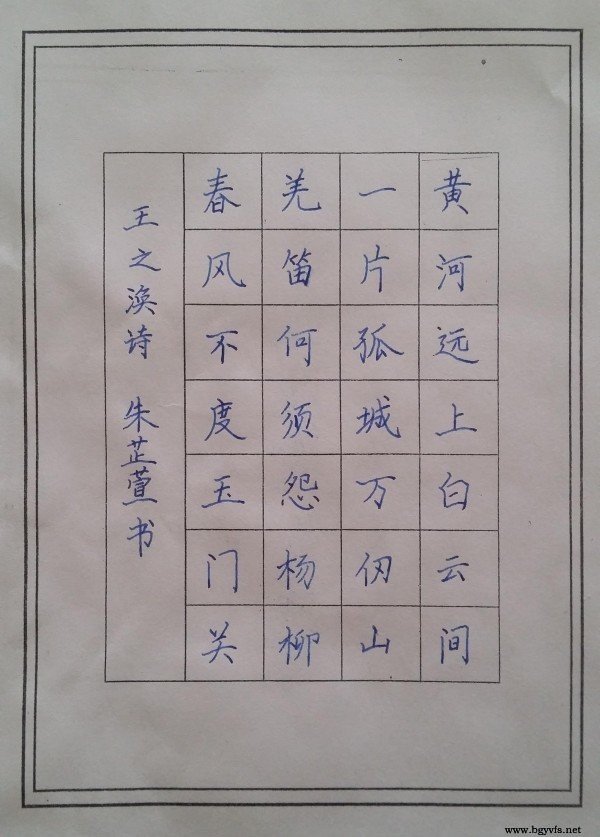 黄河远上白云间
一片孤城万仞山
羌笛何须怨杨柳
春风不度玉门关
王之涣诗 朱芷萱书
www.bgyvfs.net